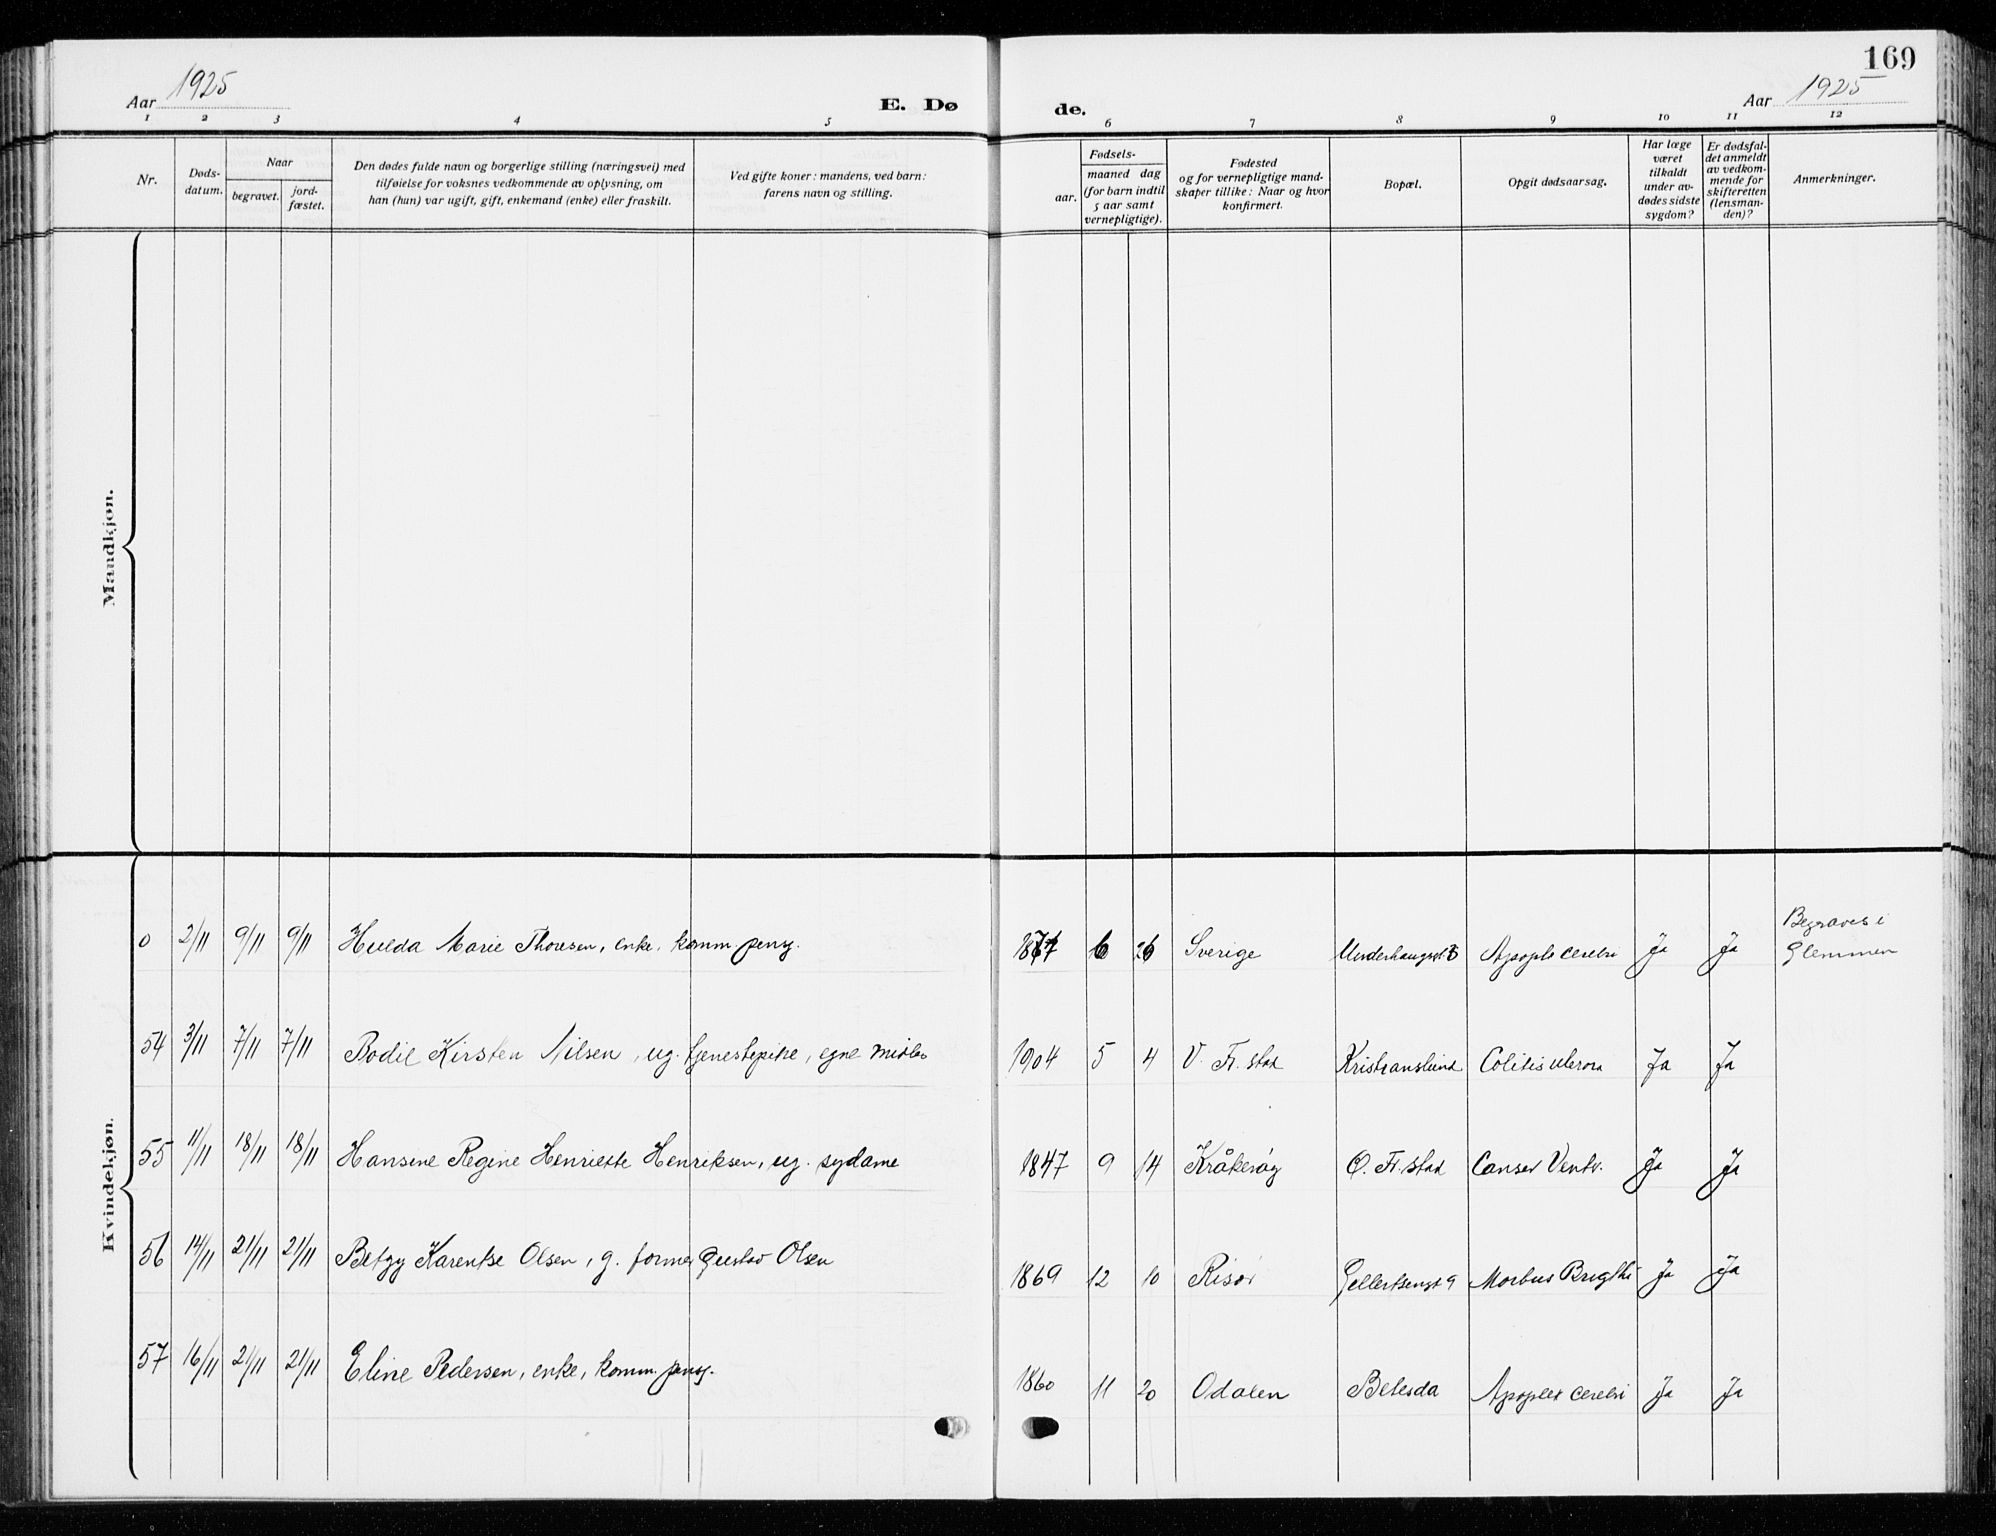 169
Aar 1925
E. Døde.
Aar 1925
1 2 3 4 5 6 7 8 9 10 11 12
Nr.
Døds-
datum.
Naar
begravet.
jord-
fæstet.
Den dødes fulde navn og borgerlige stilling (næringsvei) med
tilføielse for voksnes vedkommende av oplysning, om
han (hun) var ugift, gift, enkemand (enke) eller fraskilt.
Ved gifte koner: mandens, ved barn:
farens navn og stilling.
aar.
Fødsels-
maaned dag
(for barn indtil
5 aar samt
vernepligtige).
Fødested
og for vernepligtige mand-
skaper tillike: Naar og hvor
konfirmert.
Bopæl.
Opgit dødsaarsag.
Har læge
været
tilkaldt
under av-
dødes sidste
sygdom?
Er dødsfal-
det anmeldt
av vedkom-
mende for
skifteretten
(lensman-
den)?
Anmerkninger.
Mandkjøn.
Kvindekjøn.
0 2/11 9/11 9/11 Hulda Marie Thoresen, enke, komm. pensj. 6 Sverige Apople cerebri Ja Ja Begraves i
Glemmen
54 3/11 7/11 7/11 Bodil Kirsten Nilsen, ug. tjenestepike, egne midler 1904 5 4 V. Fr. stad Kristianslund Colitis ulcerosa Ja Ja
55 11/11 18/11 18/11 Hansine Regine Henriette Henriksen, ug. sydame 1847 9 14 Kråkerøy O. Fr. stad Canser Ventr. Ja Ja
56 14/11 21/11 21/11 Betzy Karentse Olsen, g. former Gustav Olsen 1869 12 10 Risør Gellertsengt 9 Morbus Brigthi Ja Ja
57 16/11 21/11 21/11 Eline Pedersen, enke, komm. pensj. 1860 11 20 Odalen Betesda Apoplex cerebri Ja Ja